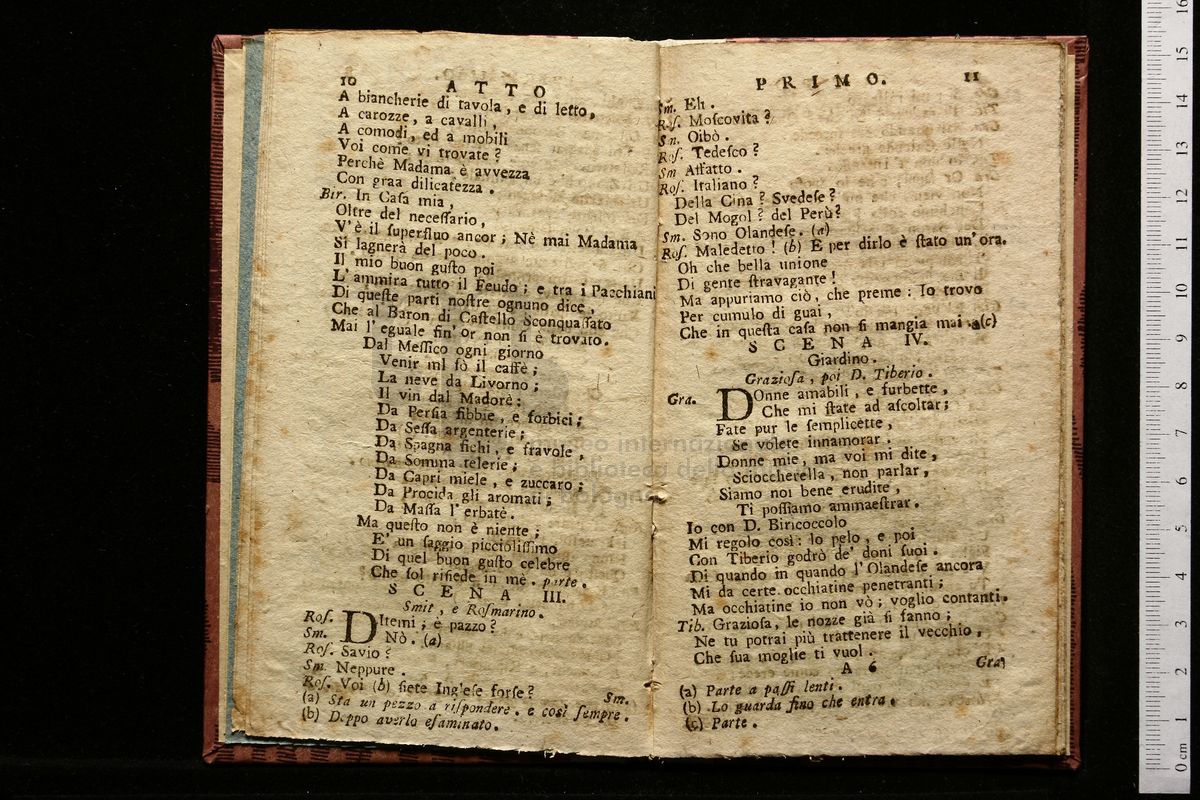 10 ATTO
A biancherie di tavola, e di letto,
A carozze, a cavalli,
A comodi, ed a mobili
Voi come vi trovate?
Perchè Madama è avvezza
Con graa dilicatezza.
Bir. In Caſa mia,
Oltre del neceſſario,
V'è il ſuperfluo ancor; Nè mai Madama
Si lagnerà del poco.
Il mio buon guſto poi
L'ammira tutto il Feudo; e tra i Pacchiani
Di queſte parti noſtre ognuno dice,
Che al Baron di Caſtello Sconquaſſato
Mai l'eguale fin'or non ſi è trovato.
Dal Meſſico ogni giorno
Venir mi fò il caffè;
La neve da Livorno;
Il vin dal Madorè:
Da Perſia fibbie, e forbici;
Da Seſſa argenterie;
Da Spagna fichi, e fravole,
Da Somma telerie;
Da Capri miele, e zuccaro;
Da Procida gli aromati;
Da Maſſa l'erbatè.
Ma queſto non è niente;
E' un ſaggio piccioliſſimo
Di quel buon guſto celebre
Che ſol riſiede in mè. parte.
SCENA III.
Smit, e Roſmarino.
Roſ. DItemi; è pazzo?
Sm. Nò. (a)
Roſ. Savio?
Sm. Neppure.
Roſ. Voi (b) ſiete Ingleſe forſe?
Sm.
(a) Sta un pezzo a riſpondere. e così ſempre.
(b) Doppo averlo eſaminato.
PRIMO. 11
Sm. Eh.
Roſ. Moſcovita?
Sm. Oibò.
Roſ. Tedeſco?
Sm Affatto.
Roſ. Italiano?
Della Cina? Svedeſe?
Del Mogol? del Perù?
Sm. Sono Olandeſe. (a)
Roſ. Maledetto! (b) E per dirlo è ſtato un'ora.
Oh che bella unione
Di gente ſtravagante!
Ma appuriamo ciò, che preme: Io trovo
Per cumulo di guai,
Che in queſta caſa non ſi mangia mai. (c)
SCENA IV.
Giardino.
Grazioſa, poi D. Tiberio.
Gra. DOnne amabili, e furbette,
Che mi ſtate ad aſcoltar;
Fate pur le ſemplicette,
Se volete innamorar.
Donne mie, ma voi mi dite,
Scioccherella, non parlar,
Siamo noi bene erudite,
Ti poſſiamo ammaeſtrar.
Io con D. Biricoccolo
Mi regolo così: lo pelo, e poi
Con Tiberio godrò de' doni ſuoi.
Di quando in quando l'Olandeſe ancora
Mi da certe occhiatine penetranti;
Ma occhiatine io non vò; voglio contanti.
Tib. Grazioſa, le nozze già ſi fanno;
Ne tu potrai più trattenere il vecchio,
Che ſua moglie ti vuol.
A 6 Gra.
(a) Parte a paſſi lenti.
(b) Lo guarda fino che entra.
(c) Parte.